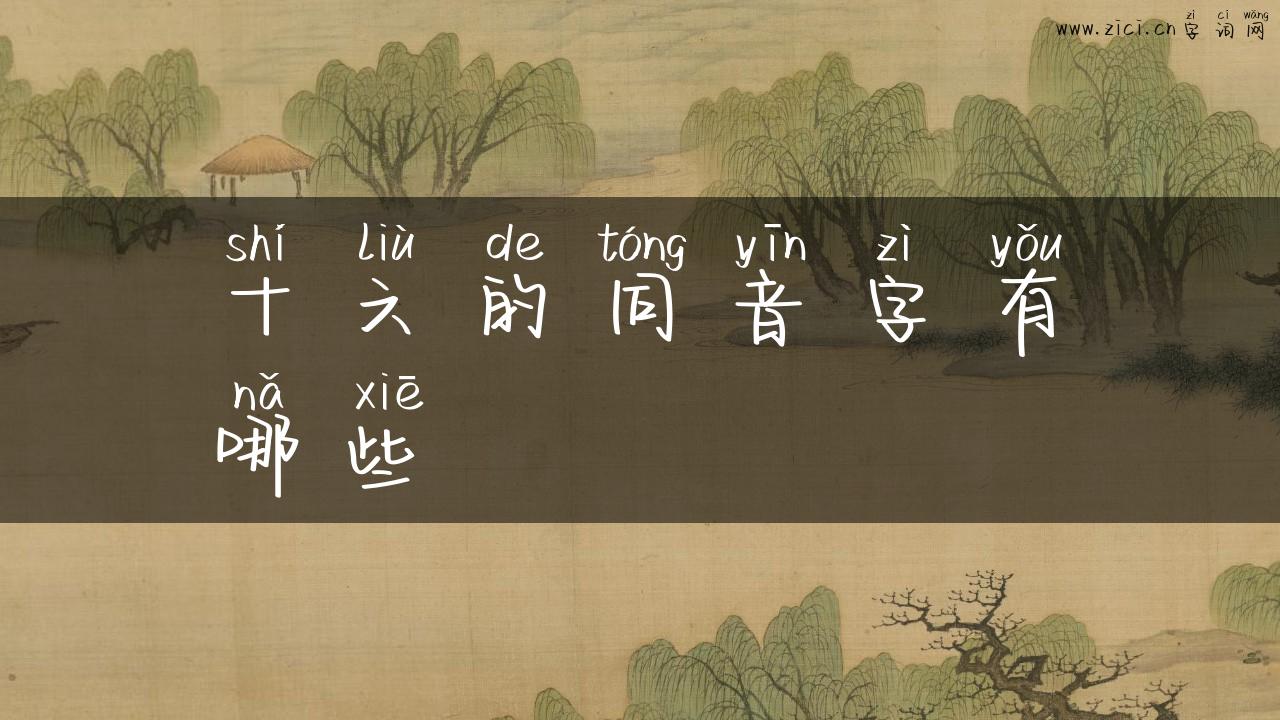 zì cí wǎng
www.zici.cn 字 词 网
shí liù de tóng yīn zì yǒu
十 六 的 同 音 字 有
nǎ xiē
哪 些